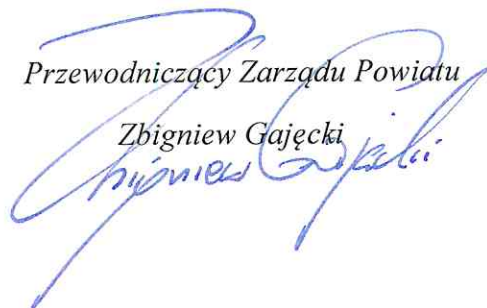 Przewodniczący Zarządu Powiatu
Zbigniew Gajęcki
Zbigniew Gajęcki